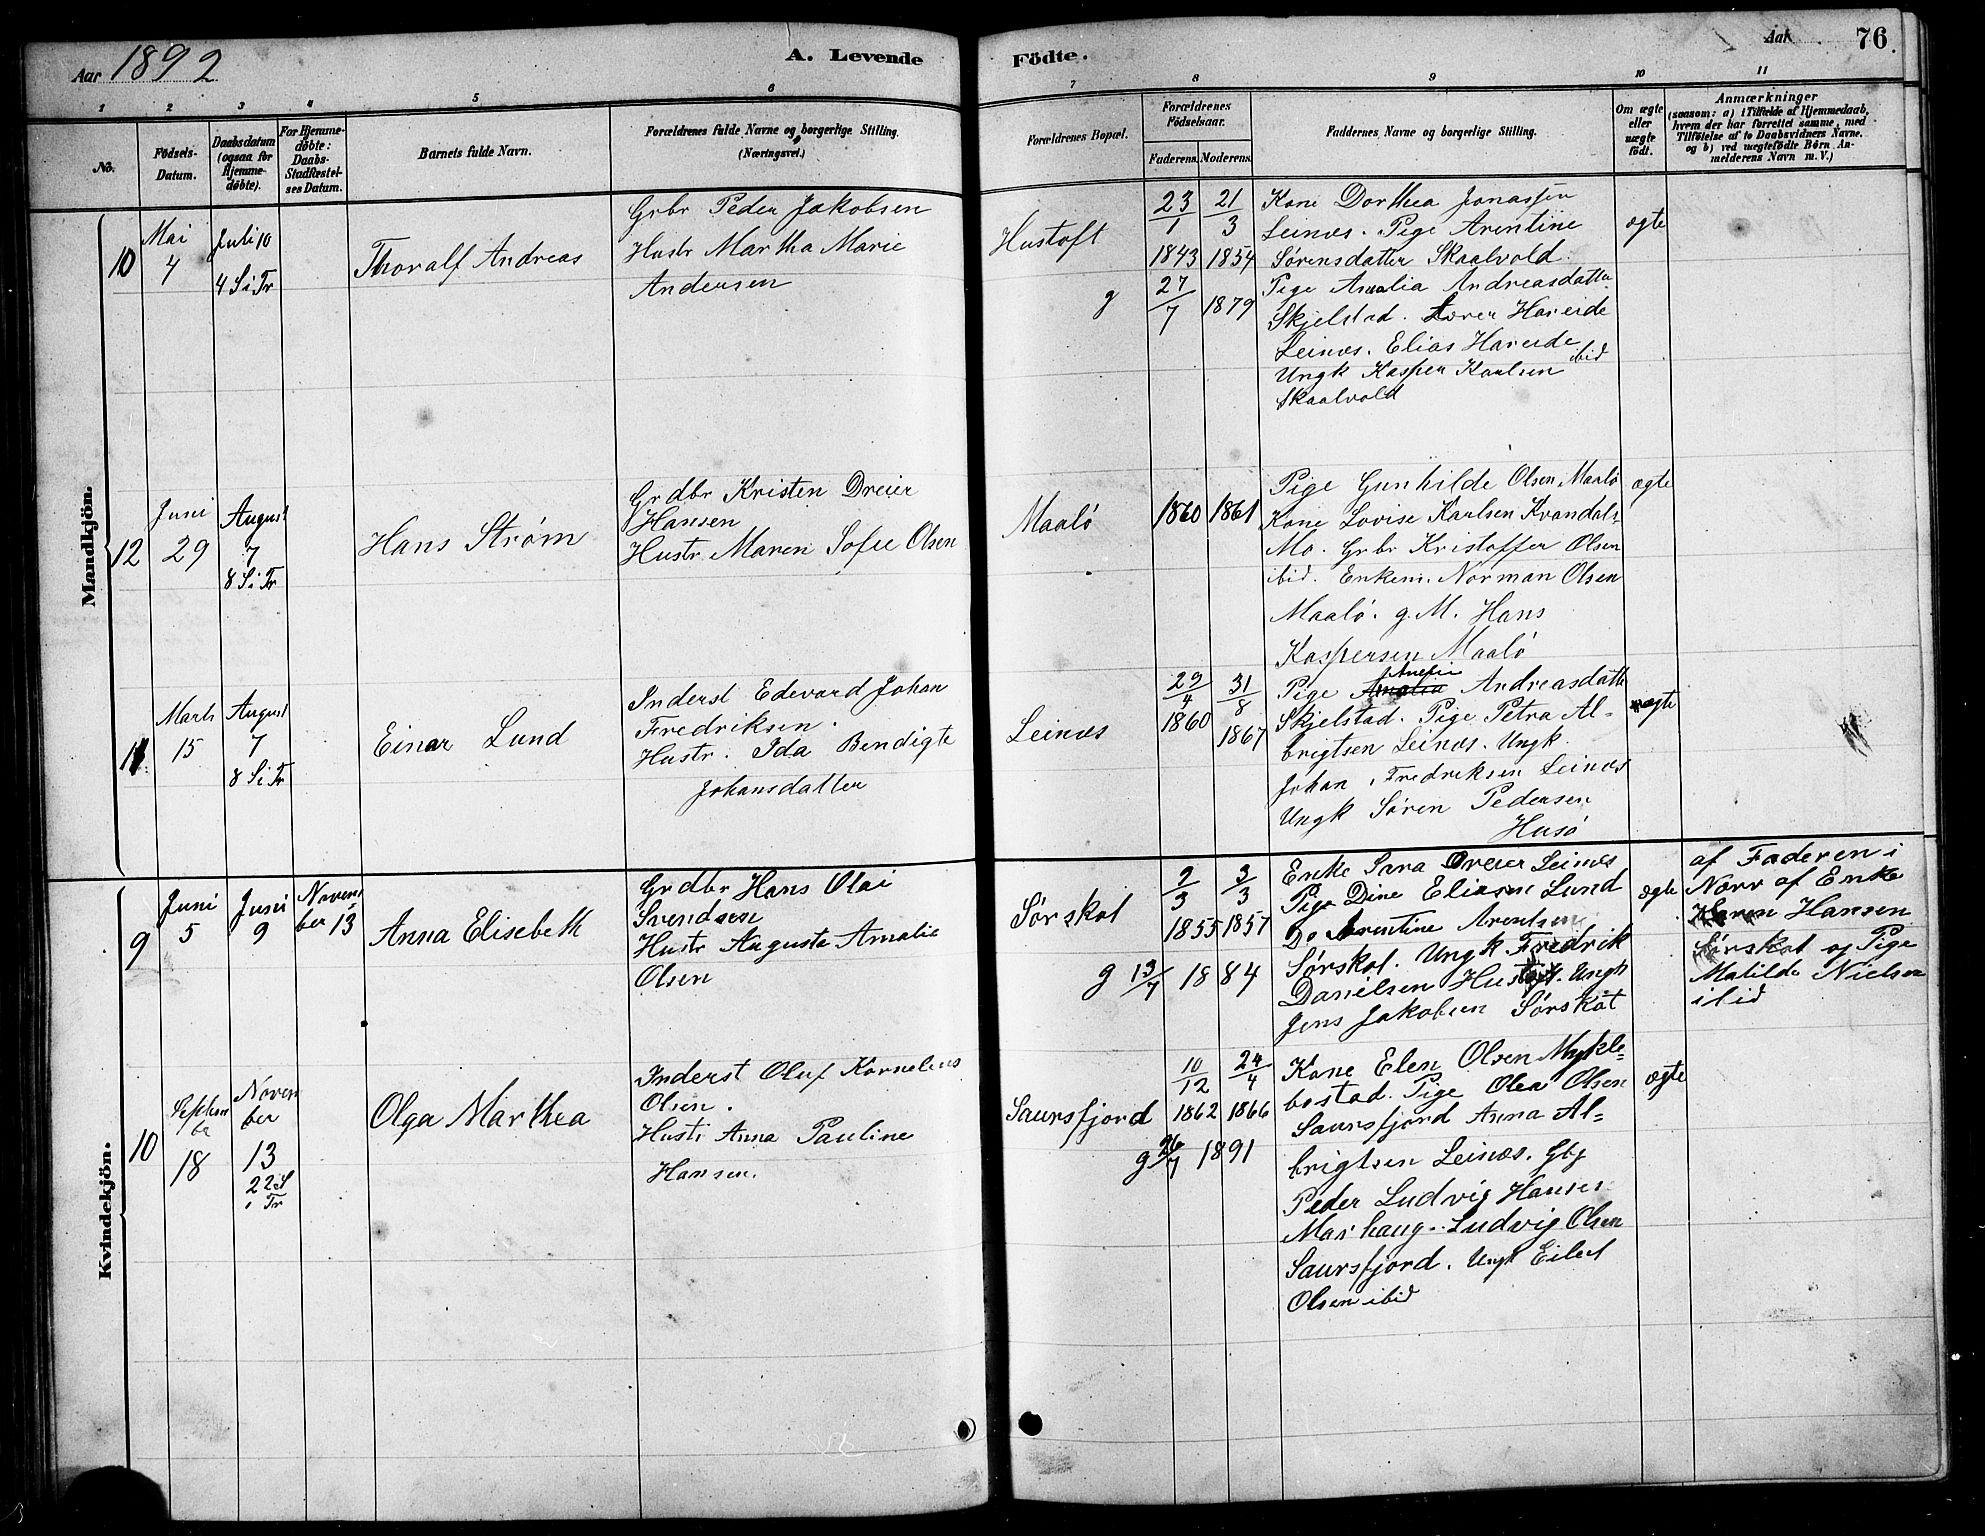 Aar 1892
A. Levende
Födte.
Aar
76.
1
2
3
4
5
6
7
8
9
10
11
No.
Födsels-
Datum.
Daabsdatum
(ogsaa for
Hjemme-
döbte).
For Hjemme-
döbte:
Daabs-
Stadfæstel-
ses Datum.
Barnets fulde Navn.
Forældrenes fulde Navne og borgerlige Stilling.
(Næringsvei.)
Forældrenes Bopæl.
Forældrenes
Födselsaar.
Faderens.
Moderens.
Faddernes Navne og borgerlige Stilling.
Om ægte
eller
uægte
födt.
Anmærkninger
(saasom: a) i Tilfælde af Hjemmedaab,
hvem der har forrettet samme, med
Tilföielse af to Daabsvidners Navne.
og b) ved uægtefödte Börn An-
melderens Navn m. V.)
Mandkjön.
10
Mai
4
Juli 10
4 S i Tr
Thoralf Andreas
Grbr Peder Jakobsen
Hustr Martha Marie
Andersen
Hustoft
23/1
1843
21/3
1854
g 27/7 1879
Kone Dorthea Jonassen
Leines. Pige Arentine
Sørensdatter Skaalvold.
Pige Amalia Andreasdatter
Skjelstad. Lærer Hareide
Leines. Elias Hareide
ibid
Ungk Kasper Karlsen
Skaalvold
ægte
12
Juni
29
August
7
8 S i Tr
Hans Strøm
Grdbr Kristen Dreier
Hansen
Hustr Maren Sofie Olsen
Maalö
1860
1861
Pige Gunhilde Olsen Maalö
Kone Lovise Karlsen Kvandal-
Mo. Grbr Kristoffer Olsen
ibid. Enkem. Norman Olsen
Maalö. g. M. Hans
Kaspersen Maalö
ægte
11
Marts
15
August
7
8 S i Tr
Einar Lund
Inderst Edevard Johan
Fredriksen.
Hustr. Ida Bendigte
Johansdatter
Leines
29/4
1860
31/8
1867
Pige Amalia Andreasdatter
Skjelstad. Pige Petra Al-
brigtsen Leines. Ungk
Johan Fredriksen Leines
Ungk Søren Pedersen
Husö
ægte
Kvindekjön.
9
Juni
5
Juni
9
Novem
ber 13
Anna Elisebeth
Grdbr Hans Olai
Svendsen
Hustr Augusta Amalie
Olsen
Sørskot
2/3
1855
3/3
1857
g 13/7 1884
Enke Sara Dreier Leines
Pige Dine Eliasen Lund
Do Arentine Arentsen
Sørskot. Ungk Fredrik
Danielsen Hustoft. Ungk
Jens Jakobsen Sørskot
ægte
af Faderen i
Nærv af Enke
Karen Hansen
Sørskot og Pige
Matilde Nielsen
ibid
10
Septem
br
18
Novem
ber
13
22 S
i Tr
Olga Marthea
Inderst Oluf Kornelius
Olsen.
Hustr Anna Pauline
Hansen.
Saursfjord
10/12
1862
24/4
1866
g 26/7 1891
Kone Elen Olsen Mykle-
bostad. Pige Olea Olsen
Saursfjord Anna Al-
brigtsen Leines. Gbr
Peder Ludvig Hansen
Marhaug. Ludvig Olsen
Saursfjord. Ungk Eilert
Olsen ibid
ægte